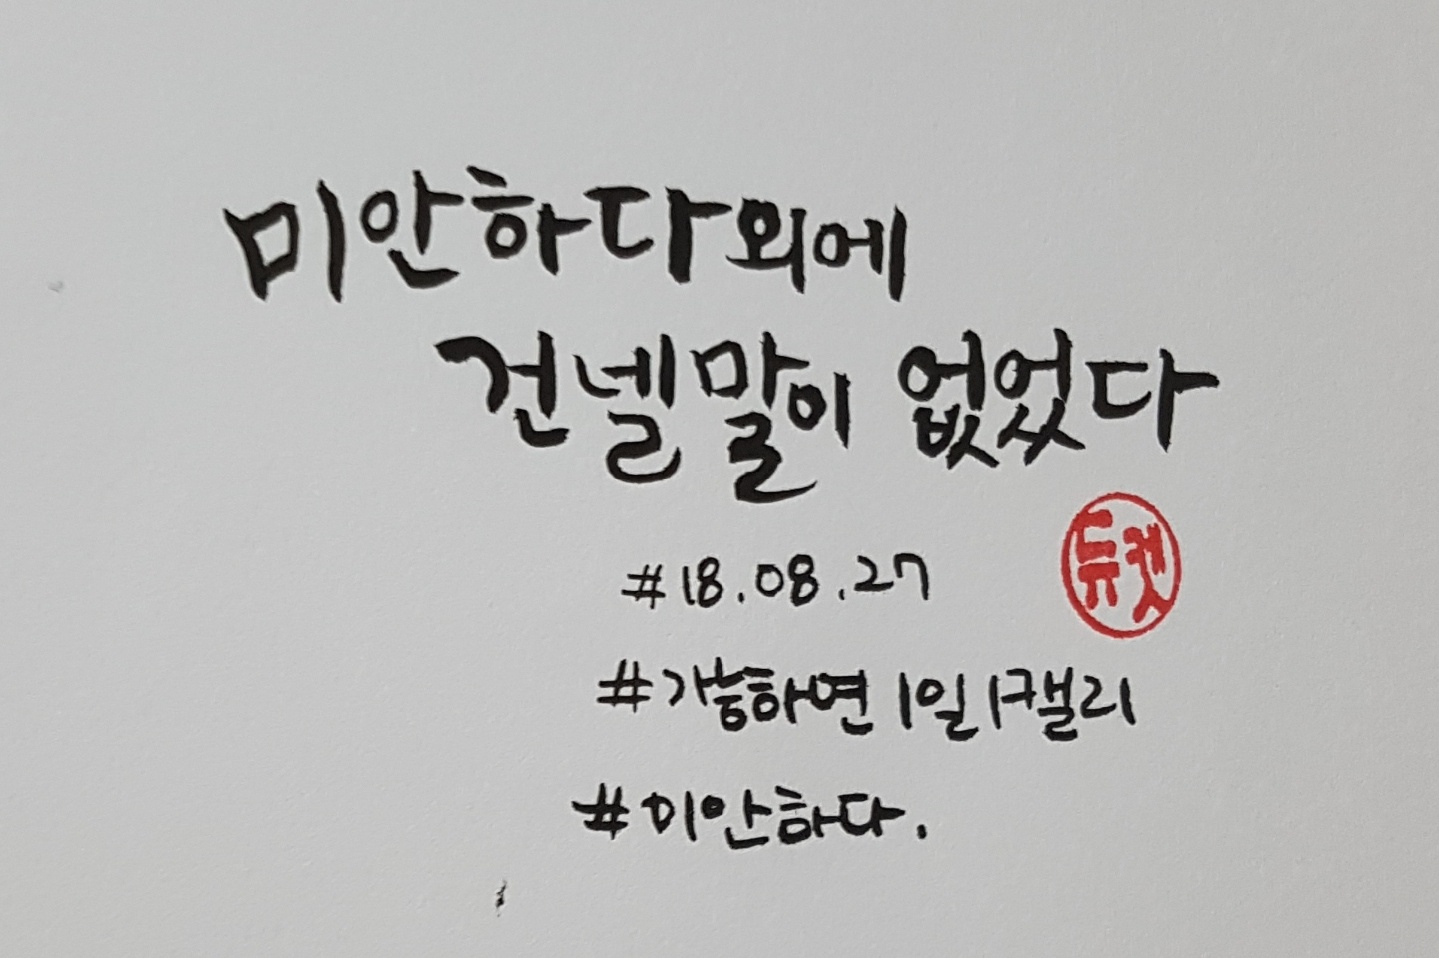 미안하다 외에
건넬 말이 없었다
듀켓
#18.08.27
#가능하면 1일 1캘리
#미안하다.